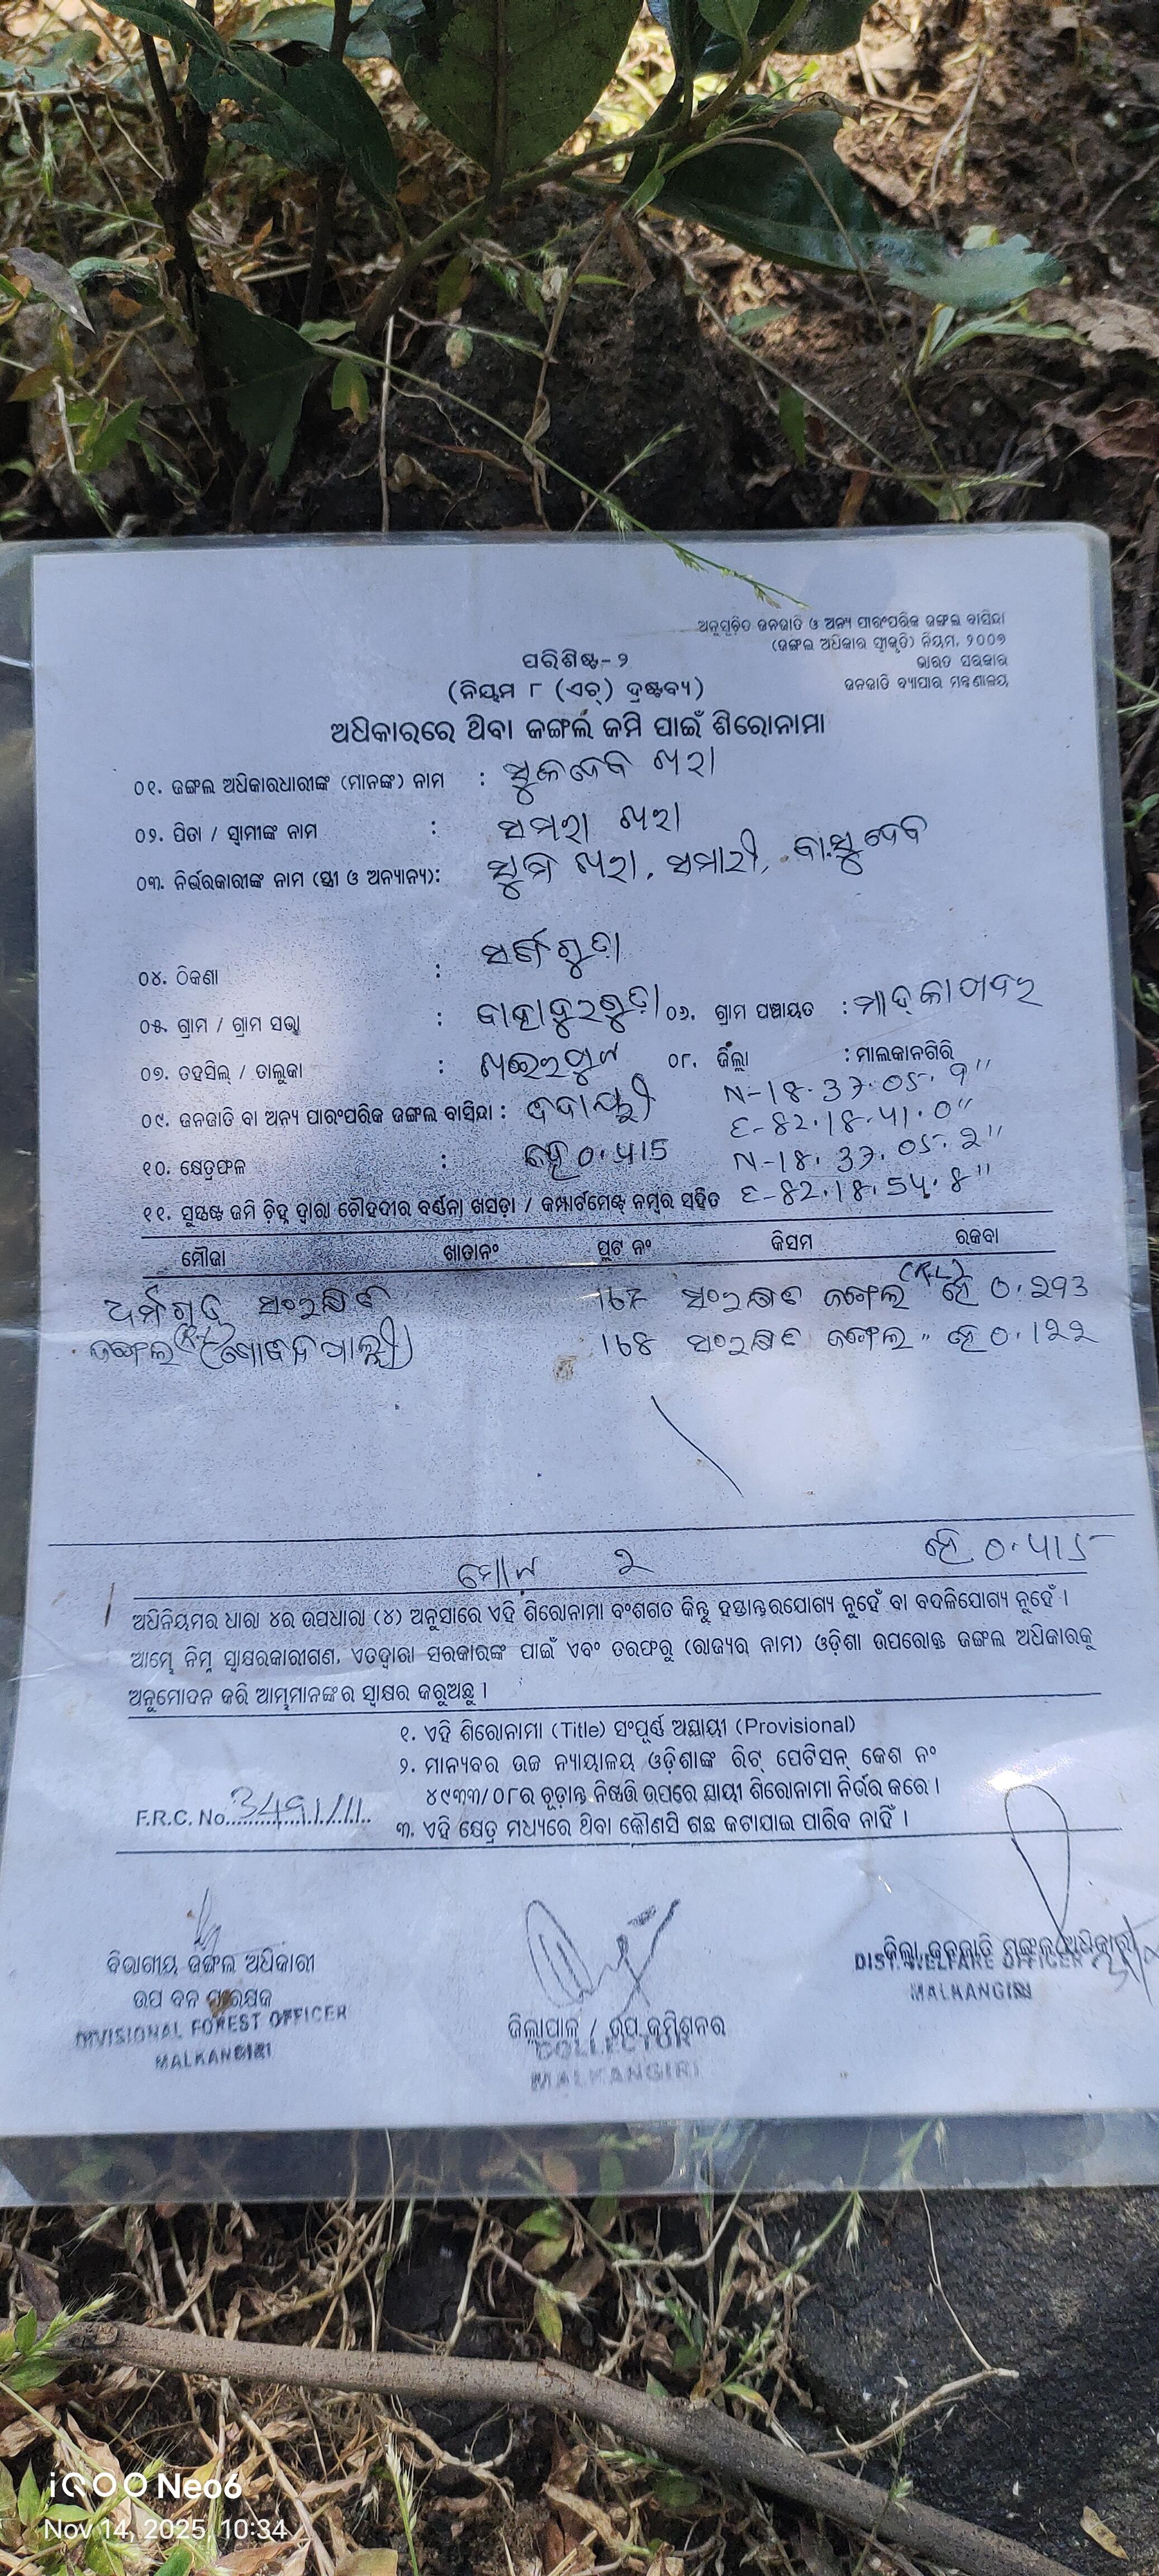 ଅନୁସୂଚିତ ଜନଜାତି ଓ ଅନ୍ୟ ପାରଂପରିକ ଜଙ୍ଗଲ ବାସିନ୍ଦା
(ଜଙ୍ଗଲ ଅଧିକାର ସ୍ୱୀକୃତି) ନିୟମ, ୨୦୦୭
ଭାରତ ସରକାର
ଜନଜାତି ବ୍ୟାପାର ମନ୍ତ୍ରଣାଳୟ
ପରିଶିଷ୍ଟ-୨
(ନିୟମ ୮ (ଏଚ୍) ଦ୍ରଷ୍ଟବ୍ୟ)
ଅଧିକାରରେ ଥିବା ଜଙ୍ଗଲ ଜମି ପାଇଁ ଶିରୋନାମା
୦୧. ଜଙ୍ଗଲ ଅଧିକାରଧାରୀଙ୍କ (ମାନଙ୍କ) ନାମ : ସୁକଦେବ ଖରା
୦୨. ପିତା / ସ୍ୱାମୀଙ୍କ ନାମ : ସମରା ଖରା
୦୩. ନିର୍ଭରକାରୀଙ୍କ ନାମ (ସ୍ତ୍ରୀ ଓ ଅନ୍ୟାନ୍ୟ): ଖରା, ସମାରୀ, ବାସୁଦେବ
୦୪. ଠିକଣା :
୦୫. ଗ୍ରାମ / ଗ୍ରାମ ସଭା : ବାହାଦୁରଗୁଡ଼ା ୦୬. ଗ୍ରାମ ପଞ୍ଚାୟତ :
୦୭. ତହସିଲ୍ / ତାଲୁକା : ଖଇରପୁଟ ୦୮. ଜିଲ୍ଲା : ମାଲକାନଗିରି
N-18.37.05.9"
୦୯. ଜନଜାତି ବା ଅନ୍ୟ ପାରଂପରିକ ଜଙ୍ଗଲ ବାସିନ୍ଦା : E-82.18.41.0"
୧୦. କ୍ଷେତ୍ରଫଳ : ହେ ୦.415 N-18.37.05.2"
୧୧. ସୁସ୍ପଷ୍ଟ ଜମି ଚିହ୍ନ ଦ୍ୱାରା ଚୌହଦୀର ବର୍ଣ୍ଣନା ଖସଡ଼ା / କମ୍ପାର୍ଟମେଣ୍ଟ ନମ୍ବର ସହିତ E-82.18.54.8"
ମୌଜା ଖାତାନଂ ପ୍ଲଟ ନଂ କିସମ ରକବା
ସଂରକ୍ଷିତ 167 ସଂରକ୍ଷିତ ଜଙ୍ଗଲ ହେ 0.293
ଜଙ୍ଗଲ 168 ସଂରକ୍ଷିତ ଜଙ୍ଗଲ " ହେ 0.122
ମୋଟ ୨ ହେ 0.415
ଅଧିନିୟମର ଧାରା ୪ର ଉପଧାରା (୪) ଅନୁସାରେ ଏହି ଶିରୋନାମା ବଂଶଗତ କିନ୍ତୁ ହସ୍ତାନ୍ତରଯୋଗ୍ୟ ନୁହେଁ ବା ବଦଳିଯୋଗ୍ୟ ନୁହେଁ ।
ଆମ୍ଭେ ନିମ୍ନ ସ୍ୱାକ୍ଷରକାରୀଗଣ, ଏତଦ୍ୱାରା ସରକାରଙ୍କ ପାଇଁ ଏବଂ ତରଫରୁ (ରାଜ୍ୟର ନାମ) ଓଡ଼ିଶା ଉପରୋକ୍ତ ଜଙ୍ଗଲ ଅଧିକାରକୁ
ଅନୁମୋଦନ କରି ଆମ୍ଭମାନଙ୍କର ସ୍ୱାକ୍ଷର କରୁଅଛୁ ।
୧. ଏହି ଶିରୋନାମା (Title) ସଂପୂର୍ଣ୍ଣ ଅସ୍ଥାୟୀ (Provisional)
୨. ମାନ୍ୟବର ଉଚ୍ଚ ନ୍ୟାୟାଳୟ ଓଡ଼ିଶାଙ୍କ ରିଟ୍ ପେଟିସନ୍ କେଶ ନଂ
୪୯୩୩/୦୮ର ଚୂଡ଼ାନ୍ତ ନିଷ୍ପତ୍ତି ଉପରେ ସ୍ଥାୟୀ ଶିରୋନାମା ନିର୍ଭର କରେ ।
F.R.C. No. 3491/11
୩. ଏହି କ୍ଷେତ୍ର ମଧ୍ୟରେ ଥିବା କୌଣସି ଗଛ କଟାଯାଇ ପାରିବ ନାହିଁ ।
ବିଭାଗୀୟ ଜଙ୍ଗଲ ଅଧିକାରୀ
ଉପ ବନ ସଂରକ୍ଷକ
DIVISIONAL FOREST OFFICER
MALKANGIRI
ଜିଲ୍ଲାପାଳ / ଉପ କମିଶନର
COLLECTOR
MALKANGIRI
ଜିଲ୍ଲା ଜନଜାତି ମଙ୍ଗଳ ଅଧିକାରୀ
DIST. WELFARE OFFICER
MALKANGIRI
iQOO Neo6
Nov 14, 2025, 10:34